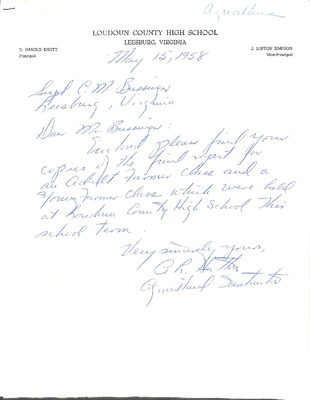 Agriculture
LOUDOUN COUNTY HIGH SCHOOL
LEESBURG, VIRGINIA
D. HAROLD KNOTT
Principal
J. LUPTON SIMPSON
Vice-Principal
May 15, 1958
Supt. C. M. Bussinger
Leesburg, Virginia
Dear Mr. Bussinger:
Enclosed please find four
copies of the final report for
an Adult Farmer Class and a
Young Farmer Class which were held
at Loudoun County High School this
school term.
Very sincerely yours,
A. L.
Agricultural Instructor